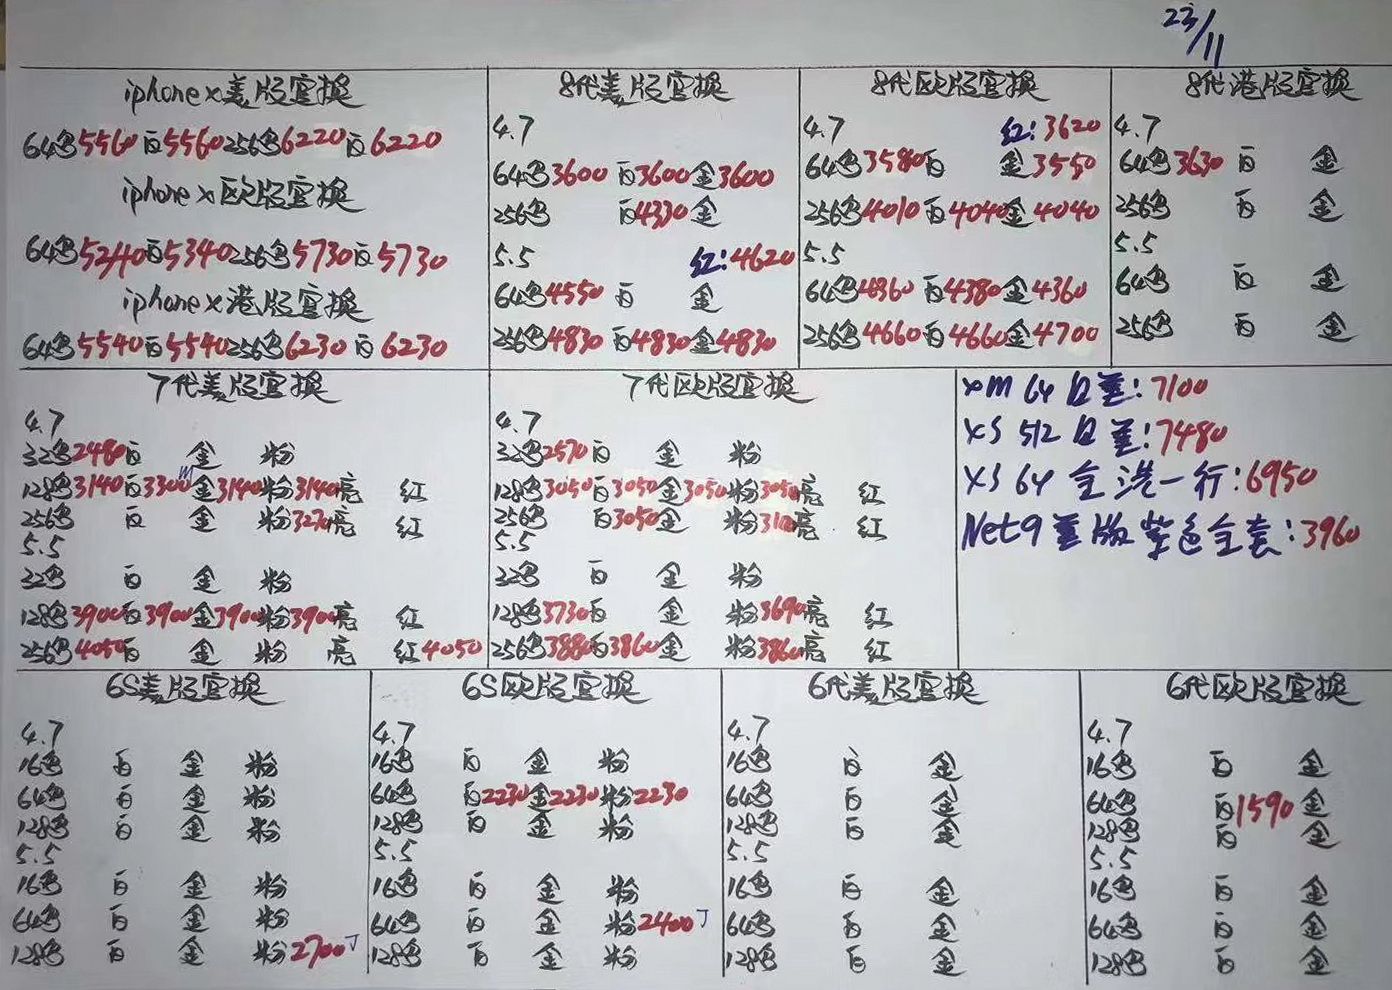 23/11
iphone x美版官换
64色5560白5560 256色6220白6220
iphone x欧版官换
64色5240白5340 256色5730白5730
iphone x港版官换
64色5540白5540 256色6230白6230
8代美版官换
4.7
64色3600 白3600金3600
256色 白4330金
5.5 红:4620
64色4550白 金
256色4830白4830金4830
8代欧版官换
4.7 红:3620
64色3580白 金3550
256色4010白4040金4040
5.5
64色4360白4380金4360
256色4660白4660金4700
8代港版官换
4.7
64色3630 白 金
256色 白 金
5.5
64色 白 金
256色 白 金
7代美版官换
4.7
32色2480白 金 粉
128色3140白3300金3140粉3140亮 红
256色 白 金 粉3270亮 红
5.5
32色 白 金 粉
128色3900白3900金3900粉3900亮 红
256色4050白 金 粉 亮 红4050
7代欧版官换
4.7
32色2570白 金 粉
128色3050白3050金3050粉3050亮 红
256色 白3050金 粉3110亮 红
5.5
32色 白 金 粉
128色3730白 金 粉3690亮 红
256色3880白3860金 粉3860亮 红
XM 64 白美:7100
XS 512 白美:7480
XS 64 金港一行:6950
Net9美版紫色全套:3960
6S美版官换
4.7
16色 白 金 粉
64色 白 金 粉
128色 白 金 粉
5.5
16色 白 金 粉
64色 白 金 粉
128色 白 金 粉2700J
6S欧版官换
4.7
16色 白 金 粉
64色 白2230金2230粉2230
128色 白 金 粉
5.5
16色 白 金 粉
64色 白 金 粉2400J
128色 白 金 粉
6代美版官换
4.7
16色 白 金
64色 白 金
128色 白 金
5.5
16色 白 金
64色 白 金
128色 白 金
6代欧版官换
4.7
16色 白 金
64色 白1590金
128色 白 金
5.5
16色 白 金
64色 白 金
128色 白 金